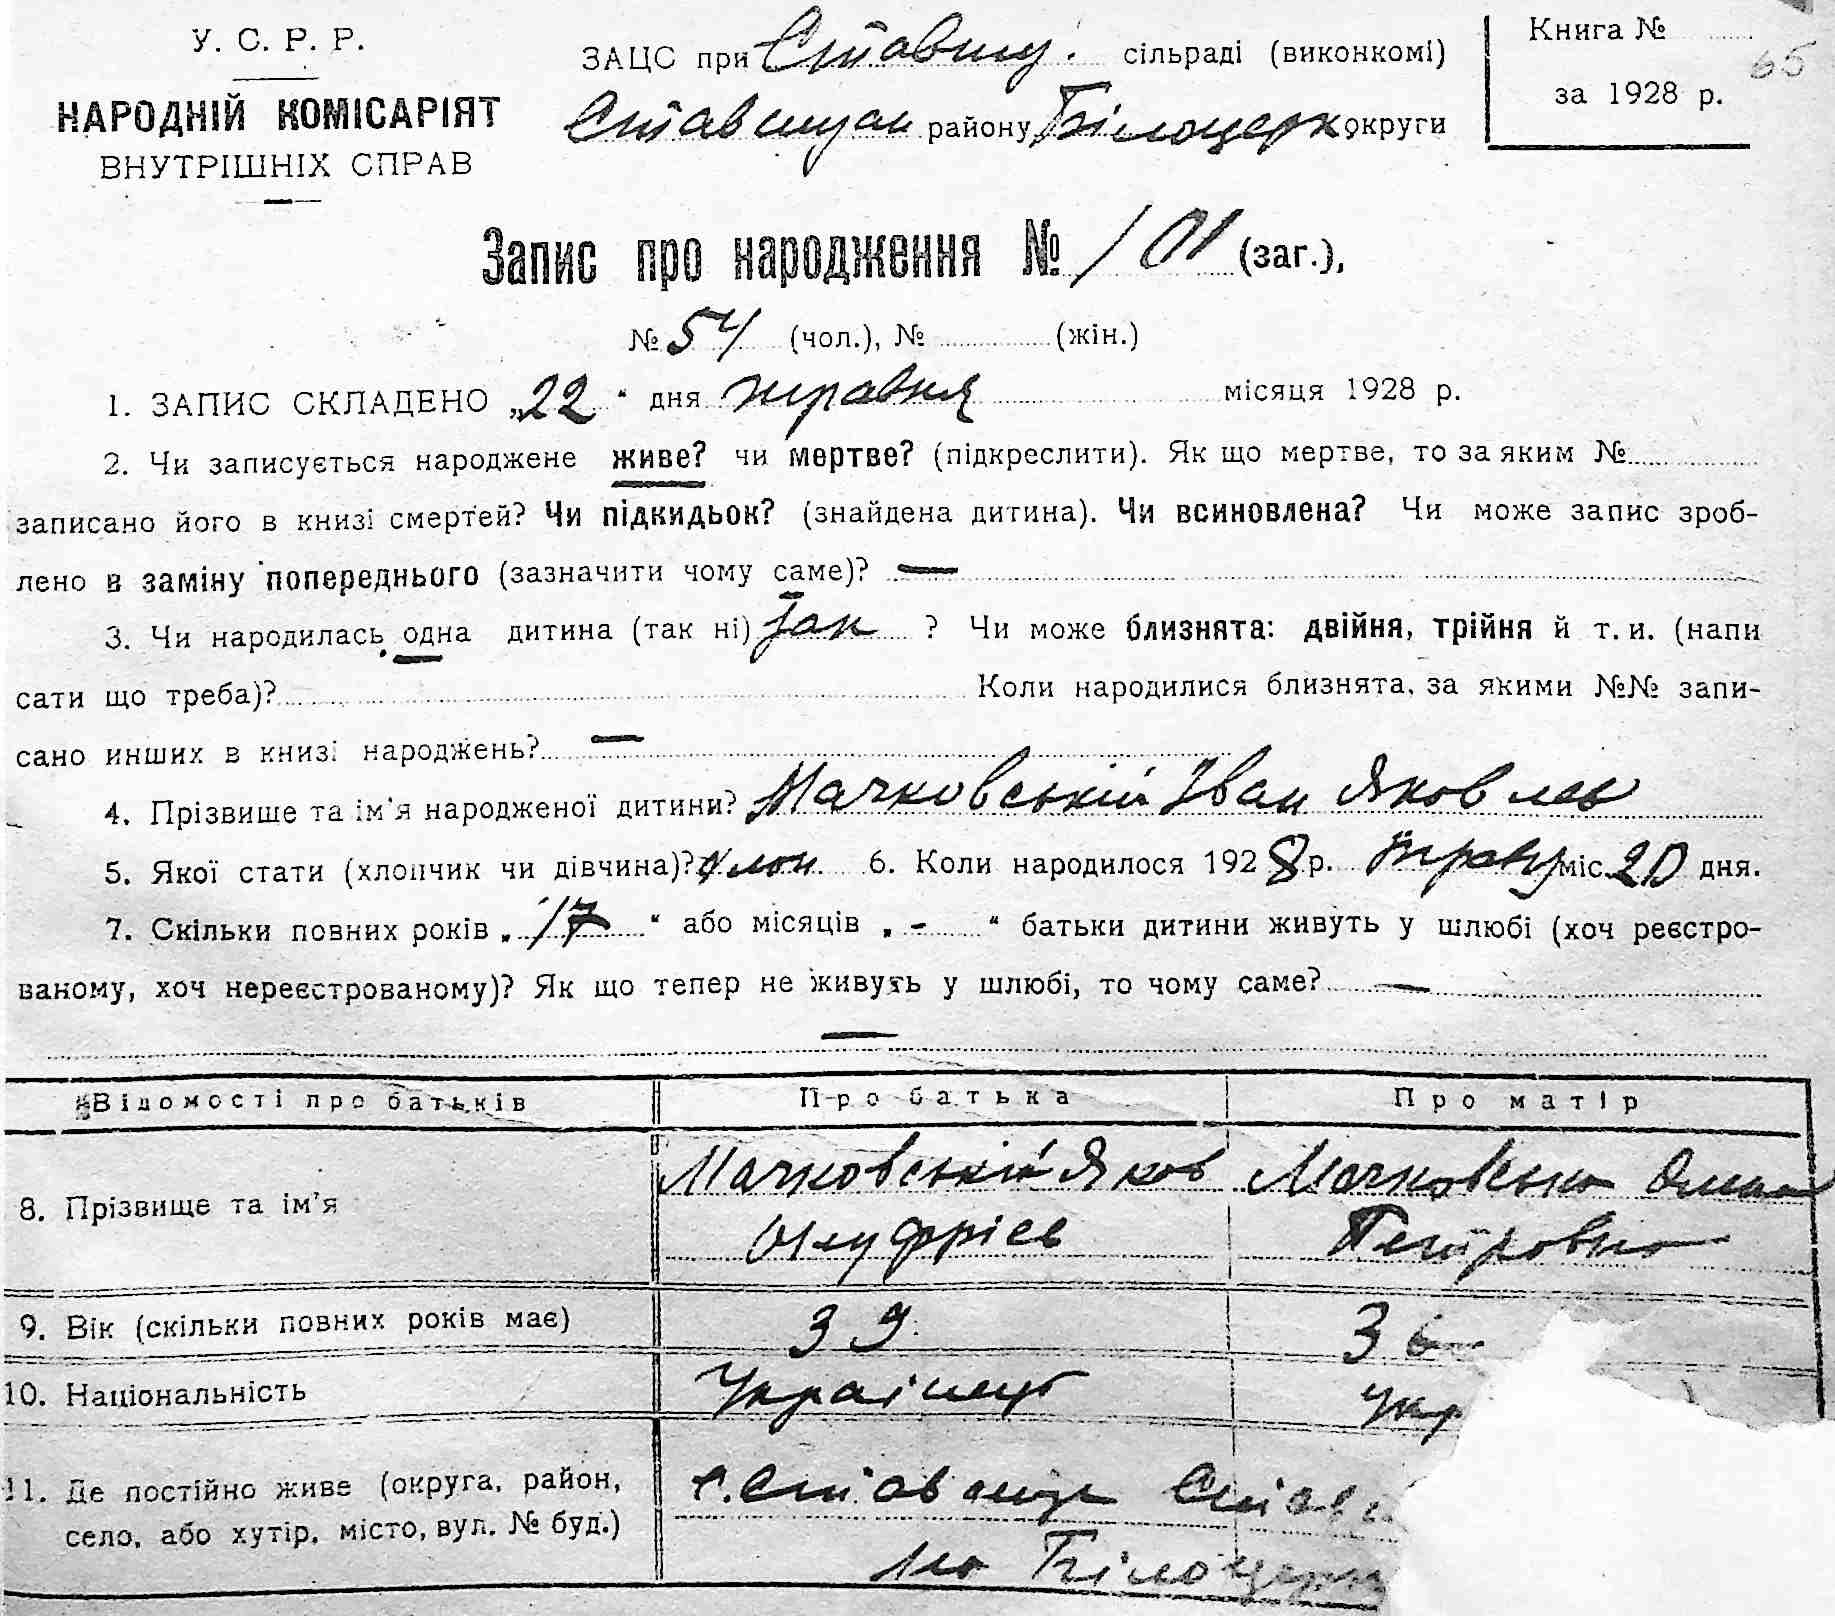 У. С. Р. Р.
НАРОДНІЙ КОМІСАРІЯТ
ВНУТРІШНІХ СПРАВ
ЗАЦС при Ставищ. сільраді (виконкомі)
району Білоцерк. округи
Книга №
65
за 1928 р.
Запис про народження № 101 (заг.),
№ 54 (чол.), № (жін.)
1. ЗАПИС СКЛАДЕНО „22" дня травня місяця 1928 р.
2. Чи записується народжене живе? чи мертве? (підкреслити). Як що мертве, то за яким №
записано його в книзі смертей? Чи підкидьок? (знайдена дитина). Чи всиновлена? Чи може запис зроб-
лено в заміну попереднього (зазначити чому саме)? —
3. Чи народилась одна дитина (так ні) так ? Чи може близнята: двійня, трійня й т. и. (напи
сати що треба)? Коли народилися близнята, за якими №№ запи-
сано инших в книзі народжень? —
4. Прізвище та ім'я народженої дитини? Мачковській Іван Яковлев
5. Якої стати (хлопчик чи дівчина)? хлоп. 6. Коли народилося 1928 р. травн міс. 20 дня.
7. Скільки повних років „17" або місяців „-" батьки дитини живуть у шлюбі (хоч реєстро-
ваному, хоч нереєстрованому)? Як що тепер не живуть у шлюбі, то чому саме? —
—
Відомості про батьків Про батька Про матір
8. Прізвище та ім'я Мачковській Яков Мачковська
Онуфрієв Петровна
9. Вік (скільки повних років має) 39 36
10. Національність Українець Укр
11. Де постійно живе (округа, район, с. Ставище Ставищ
село, або хутір, місто, вул. № буд.) Білоцерк